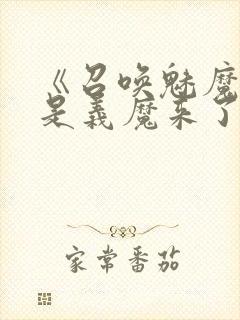 《召唤魅魔
是义魔来了
家常番茄